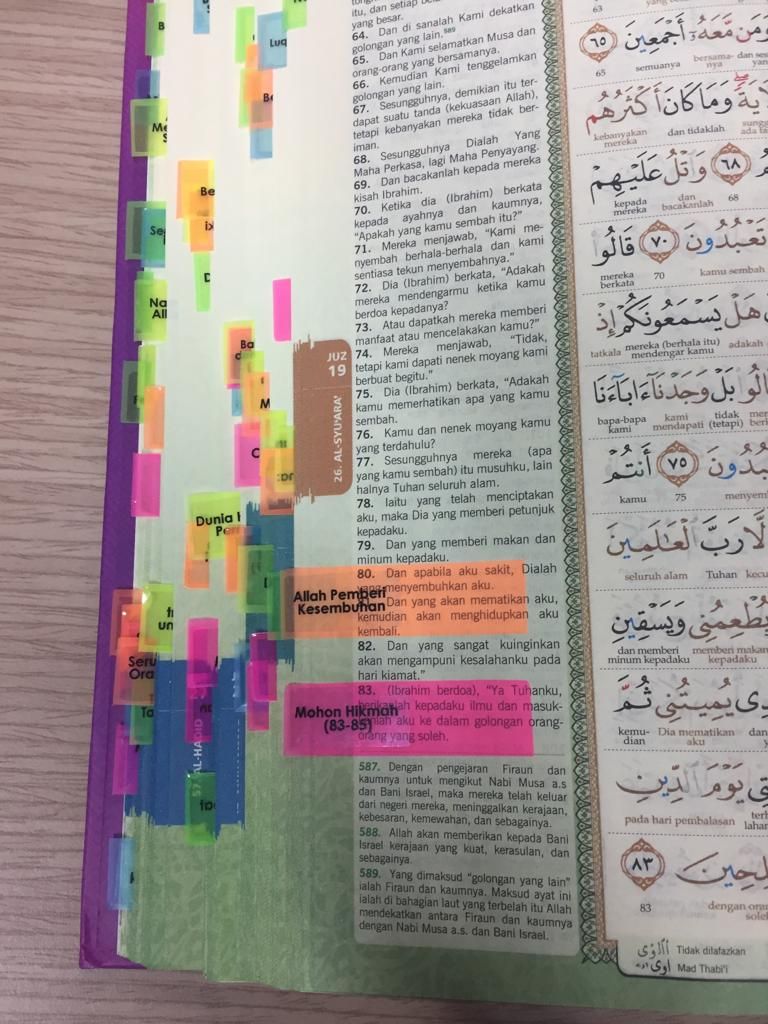 B
Luq
Be
Me
S
Be
Se
Na
All
Ba
M
C
Dunia
Per
Allah Pemberi
Kesembuhan
Seru
Ora
Ta
Mohon Hikmah
(83-85)
57 AL-HADID
JUZ
19
26. AL-SYU'ARA'
itu, dan setiap
yang besar.
64. Dan di sanalah Kami dekatkan
golongan yang lain.589
65. Dan Kami selamatkan Musa dan
orang-orang yang bersamanya.
66. Kemudian Kami tenggelamkan
golongan yang lain.
67. Sesungguhnya, demikian itu ter-
dapat suatu tanda (kekuasaan Allah),
tetapi kebanyakan mereka tidak ber-
iman.
68. Sesungguhnya Dialah Yang
Maha Perkasa, lagi Maha Penyayang.
69. Dan bacakanlah kepada mereka
kisah Ibrahim.
70. Ketika dia (Ibrahim) berkata
kepada ayahnya dan kaumnya,
"Apakah yang kamu sembah itu?"
71. Mereka menjawab, "Kami me-
nyembah berhala-berhala dan kami
sentiasa tekun menyembahnya."
72. Dia (Ibrahim) berkata, "Adakah
mereka mendengarmu ketika kamu
berdoa kepadanya?
73. Atau dapatkah mereka memberi
manfaat atau mencelakakan kamu?"
74. Mereka menjawab, "Tidak,
tetapi kami dapati nenek moyang kami
berbuat begitu."
75. Dia (Ibrahim) berkata, "Adakah
kamu memerhatikan apa yang kamu
sembah.
76. Kamu dan nenek moyang kamu
yang terdahulu?
77. Sesungguhnya mereka (apa
yang kamu sembah) itu musuhku, lain
halnya Tuhan seluruh alam.
78. Iaitu yang telah menciptakan
aku, maka Dia yang memberi petunjuk
kepadaku.
79. Dan yang memberi makan dan
minum kepadaku.
80. Dan apabila aku sakit, Dialah
yang menyembuhkan aku.
Dan yang akan mematikan aku,
kemudian akan menghidupkan aku
kembali.
82. Dan yang sangat kuinginkan
akan mengampuni kesalahanku pada
hari kiamat."
83. (Ibrahim berdoa), "Ya Tuhanku,
berikanlah kepadaku ilmu dan masuk-
kanlah aku ke dalam golongan orang-
orang yang soleh.
587. Dengan pengejaran Firaun dan
kaumnya untuk mengikut Nabi Musa a.s
dan Bani Israel, maka mereka telah keluar
dari negeri mereka, meninggalkan kerajaan,
kebesaran, kemewahan, dan sebagainya.
588. Allah akan memberikan kepada Bani
Israel kerajaan yang kuat, kerasulan, dan
sebagainya.
589. Yang dimaksud "golongan yang lain"
ialah Firaun dan kaumnya. Maksud ayat ini
ialah di bahagian laut yang terbelah itu Allah
mendekatkan antara Firaun dan kaumnya
dengan Nabi Musa a.s. dan Bani Israel.
63
وَمَن مَّعَهُۥٓ أَجْمَعِينَ ٦٥
bersama-
nya
semuanya
65
وَمَا كَانَ أَكْثَرُهُم
dan tidaklah
kebanyakan
mereka
٦٨ وَٱتْلُ عَلَيْهِمْ
68
dan
bacakanlah
kepada
mereka
تَعْبُدُونَ ٧٠ قَالُوا
kamu sembah
70
mereka
berkata
هَلْ يَسْمَعُونَكُمْ إِذْ
adakah
mereka (berhala itu)
mendengar kamu
tatkala
بَلْ وَجَدْنَآ ءَابَآءَنَا
tidak
(tetapi)
kami
mendapati
bapa-bapa
kami
٧٥ أَنتُمْ
75
kamu
إِلَّا رَبَّ ٱلْعَٰلَمِينَ
Tuhan
seluruh alam
يُطْعِمُنِى وَيَسْقِينِ
memberi makan
kepadaku
dan memberi
minum kepadaku
يُمِيتُنِى ثُمَّ
Dia mematikan
aku
kemu-
dian
يَوْمَ ٱلدِّينِ
pada hari pembalasan
٨٣
83
Tidak dilafazkan
Mad Thabi'i